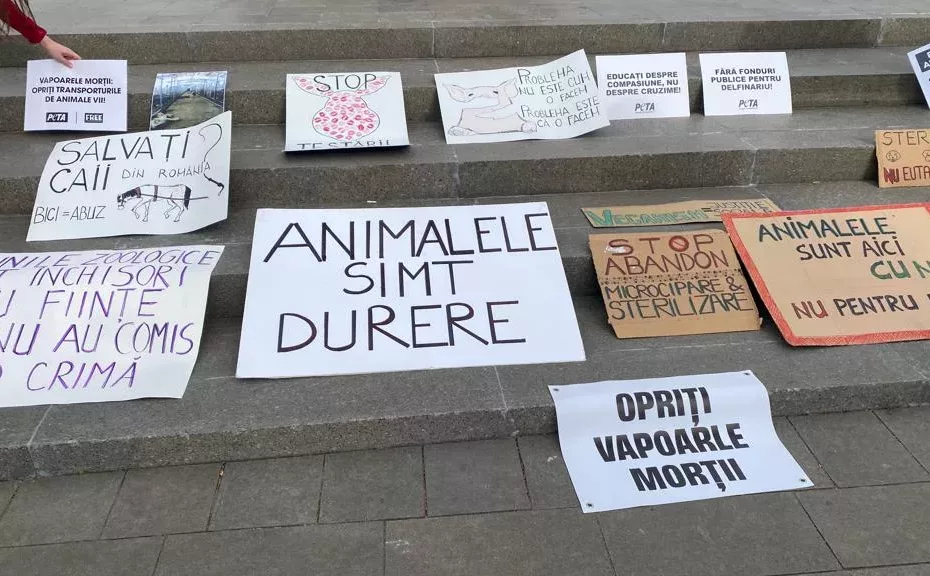 VAPOARELE MORȚII:
OPRIȚI TRANSPORTURILE
DE ANIMALE VII!
PETA
FREE
STOP
TESTĂRII
PROBLEMA
NU ESTE CUM
O FACEM
PROBLEMA ESTE
CĂ O FACEM
EDUCAȚI DESPRE
COMPASIUNE, NU
DESPRE CRUZIME!
PETA
FĂRĂ FONDURI
PUBLICE PENTRU
DELFINARIU!
PETA
SALVAȚI
CAII DIN ROMÂNIA
BICI = ABUZ
NU
ANIMALELE
SIMT
DURERE
VEGANISM
STOP
ABANDON
MICROCIPARE &
STERILIZARE
ANIMALELE
SUNT AICI
CU
NU PENTRU
ZOOLOGICE
ÎNCHISORI
FIINȚE
NU AU COMIS
O CRIMĂ
OPRIȚI
VAPOARLE
MORȚII